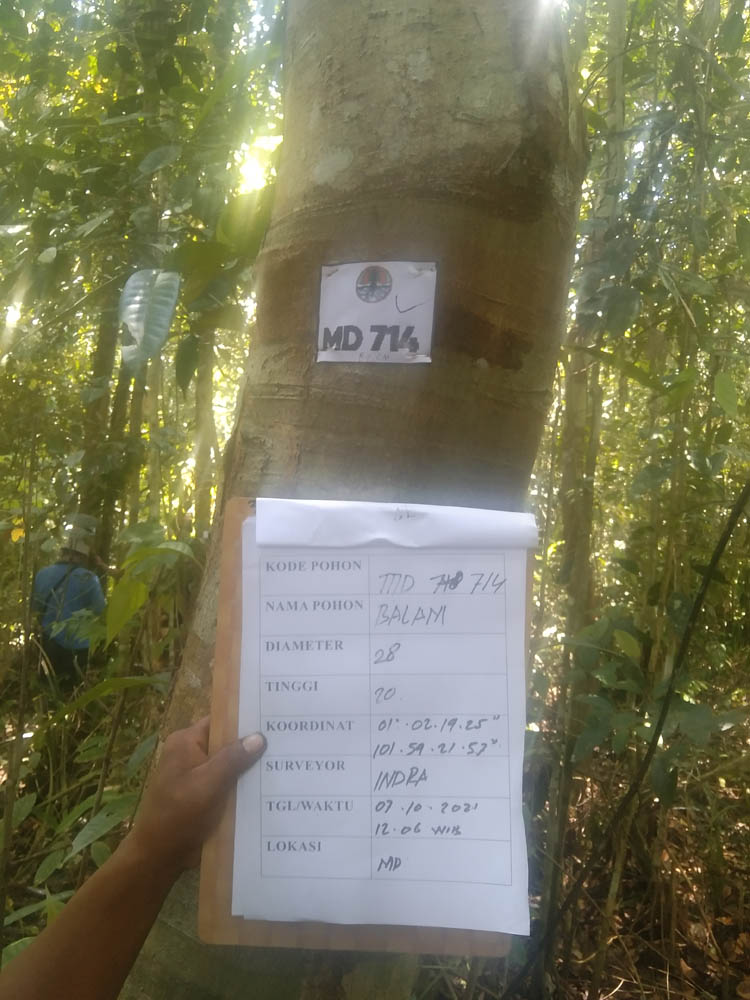 MD 714
KODE POHON MD 714
NAMA POHON BALAM
DIAMETER 28
TINGGI 20
KOORDINAT 01° . 02 . 19 . 25 "
101 . 59 . 21 . 57 "
SURVEYOR INDRA
TGL/WAKTU 07 . 10 . 2021
12 . 06 WIB
LOKASI MD